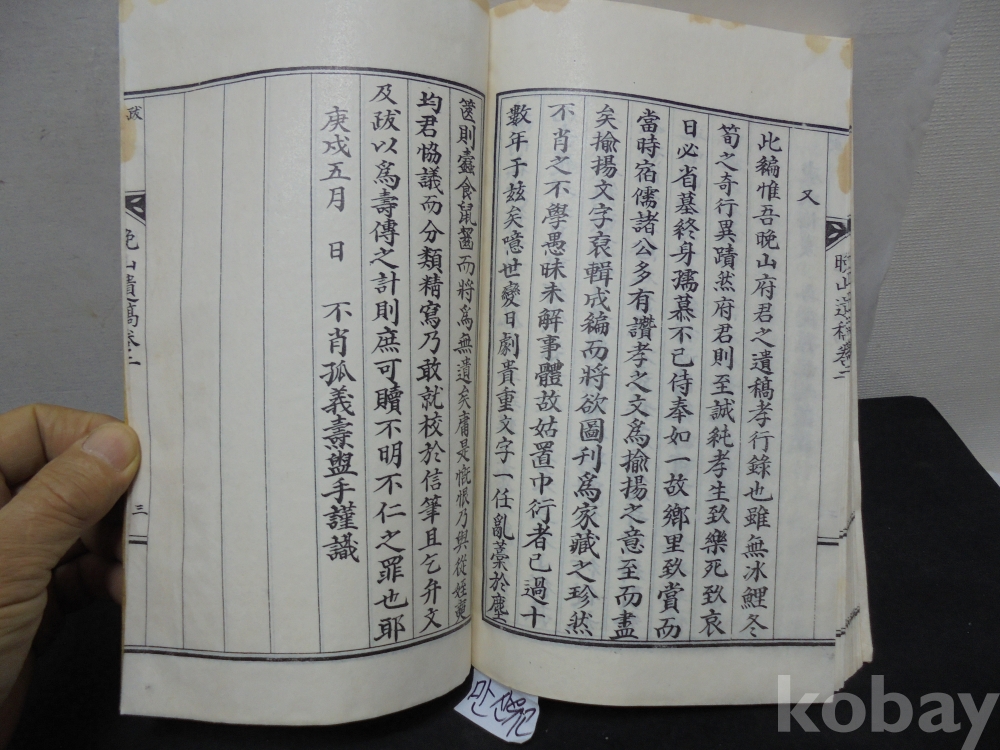 又
此編惟吾晚山府君之遺稿孝行錄也雖無冰鯉冬
筍之奇行異蹟然府君則至誠純孝生致樂死致哀
日必省墓終身孺慕不已侍奉如一故鄉里致賞而
當時宿儒諸公多有讚孝之文爲揄揚之意至而盡
矣揄揚文字裒輯成編而將欲圖刊爲家藏之珍然
不肖之不學愚昧未解事體故姑置巾衍者已過十
數年于玆矣噫世變日劇貴重文字一任亂藁於塵
篋則蠹食鼠齧而將爲無遺矣庸是慨恨乃與從姪東
均君恊議而分類精寫乃敢就校於信筆且乞弁文
及跋以爲壽傳之計則庶可贖不明不仁之罪也耶
庚戌五月 日 不肖孤義壽盥手謹識
晚山遺稿卷二
跋
晚山遺藁卷二
三
만산유고
kobay